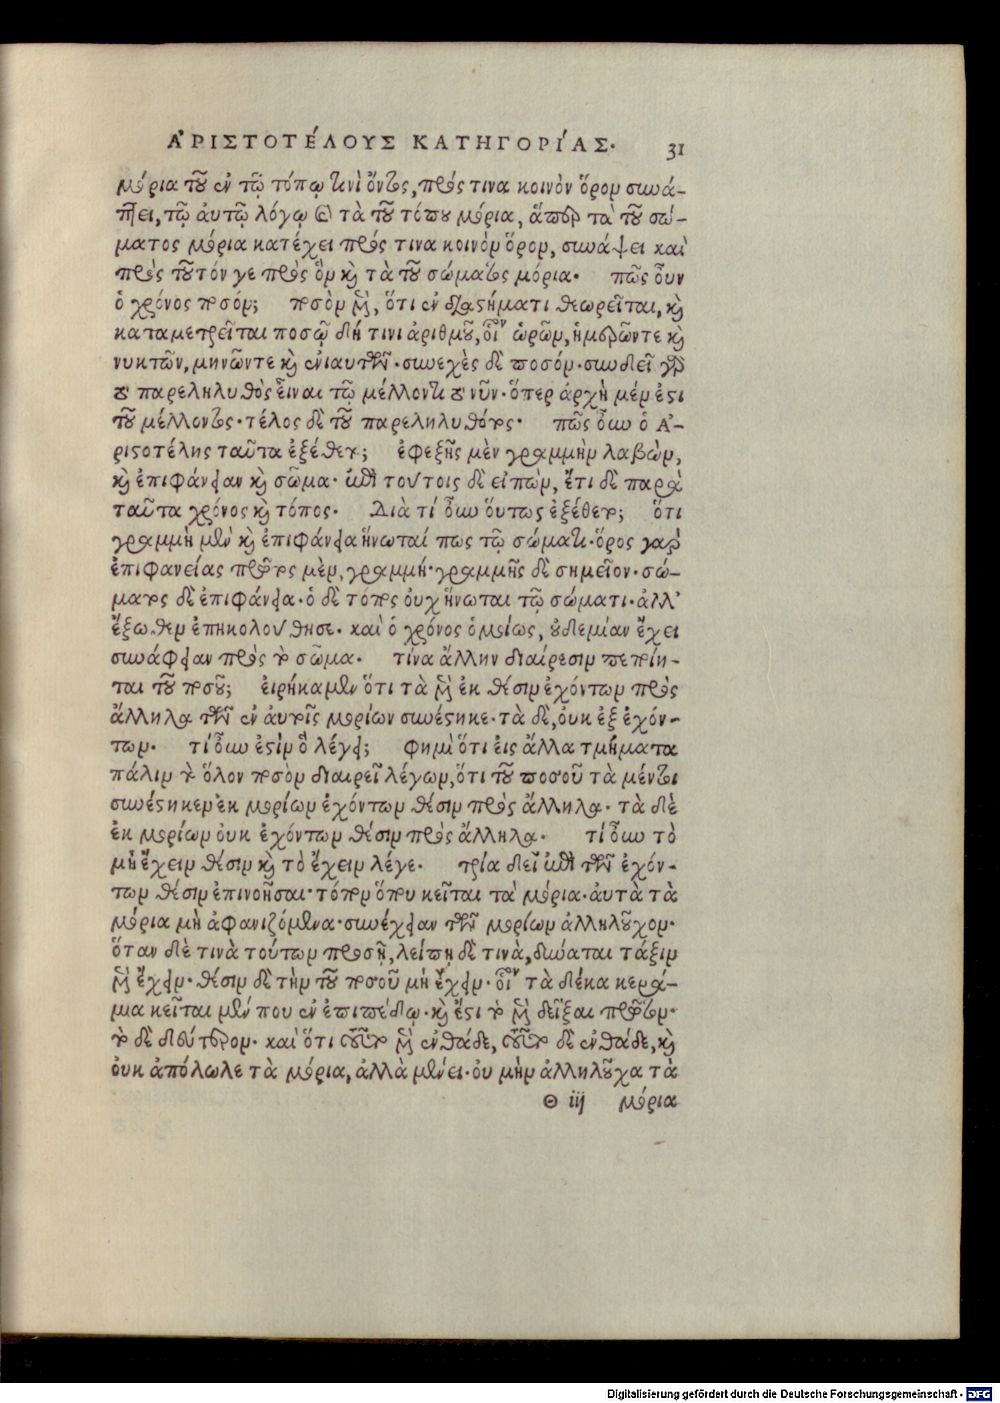 ἈΡΙΣΤΟΤΈΛΟΥΣ ΚΑΤΗΓΟΡΊΑΣ· 31
μόρια τοῦ ἐν τῷ τόπῳ τινὶ ὄντος, πρός τινα κοινὸν ὅρον συνά-
πτει, τῷ ἀυτῷ λόγῳ καὶ τὰ τοῦ τόπου μόρια, ἅπερ τὰ τοῦ σώ-
ματος μόρια κατέχει πρός τινα κοινὸν ὅρον, συνάψει καὶ
πρὸς τοῦτόν γε πρὸς ὃν καὶ τὰ τοῦ σώματος μόρια· πῶς οὖν
ὁ χρόνος ποσόν; ποσὸν μὲν, ὅτι ἐν διαστήματι θεωρεῖται, καὶ
καταμετρεῖται ποσῷ δή τινι ἀριθμοῦ, οἷον ὡρῶν, ἡμερῶντε καὶ
νυκτῶν, μηνῶντε καὶ ἐνιαυτῶν· συνεχὲς δὲ ποσόν· συνδεῖ γὰρ
τὸ παρεληλυθὸς εἶναι τῷ μέλλοντι τὸ νῦν· ὅπερ ἀρχὴ μέν ἐστι
τοῦ μέλλοντος· τέλος δὲ τοῦ παρεληλυθότος· πῶς οὖν ὁ Ἀ-
ριστοτέλης ταῦτα ἐξέθετο; ἐφεξῆς μὲν γραμμὴν λαβὼν,
καὶ ἐπιφάνειαν καὶ σῶμα· ἐπὶ τούτοις δὲ εἰπὼν, ἔτι δὲ παρὰ
ταῦτα χρόνος καὶ τόπος· Διὰ τί οὖν ὅυτως ἐξέθετο; ὅτι
γραμμὴ μὲν καὶ ἐπιφάνεια ἥνωταί πως τῷ σώματι· ὅρος γὰρ
ἐπιφανείας πρῶτος μὲν, γραμμή· γραμμῆς δὲ σημεῖον· σώ-
ματος δὲ ἐπιφάνεια· ὁ δὲ τόπος οὐχ ἥνωται τῷ σώματι· ἀλλ'
ἔξωθεν ἐπηκολούθησε· καὶ ὁ χρόνος ὁμοίως, οὐδεμίαν ἔχει
συνάφειαν πρὸς τὸ σῶμα· τίνα ἄλλην διαίρεσιν πεποίη-
ται τοῦ ποσοῦ; εἰρήκαμεν ὅτι τὰ μὲν ἐκ θέσιν ἐχόντων πρὸς
ἄλληλα τῶν ἐν ἀυτοῖς μορίων συνέστηκε· τὰ δὲ, ὀυκ ἐξ ἐχόν-
των· τί οὖν ἐστὶν ὃ λέγει; φημὶ ὅτι ἐις ἄλλα τμήματα
πάλιν τὸ ὅλον ποσὸν διαιρεῖ λέγων, ὅτι τοῦ ποσοῦ τὰ μέντοι
συνέστηκεν ἐκ μορίων ἐχόντων θέσιν πρὸς ἄλληλα· τὰ δὲ
ἐκ μορίων ὀυκ ἐχόντων θέσιν πρὸς ἄλληλα· τί οὖν τὸ
μὴ ἔχειν θέσιν καὶ τὸ ἔχειν λέγε· τρία δεῖ ἐπὶ τῶν ἐχόν-
των θέσιν ἐπινοῆσαι· τόπον ὅπου κεῖται τὰ μόρια· ἀυτὰ τὰ
μόρια μὴ ἀφανιζόμενα· συνέχειαν τῶν μορίων ἀλληλοῦχον·
ὅταν δὲ τινὰ τούτων προσῇ, λείπῃ δὲ τινὰ, δύναται τάξιν
μὲν ἔχειν· θέσιν δὲ τὴν τοῦ ποσοῦ μὴ ἔχειν· οἷον τὰ δέκα κερά-
μια κεῖται μέν που ἐν ἐπιπέδῳ· καὶ ἔστι τὸ μὲν δεῖξαι πρῶτον·
τὸ δὲ δεύτερον· καὶ ὅτι τοῦτο μὲν ἐνθάδε, τοῦτο δὲ ἐνθάδε, καὶ
ὀυκ ἀπόλωλε τὰ μόρια, ἀλλὰ μένει· ὀυ μὴν ἀλληλοῦχα τὰ
Θ iij μόρια
Digitalisierung gefördert durch die Deutsche Forschungsgemeinschaft · DFG